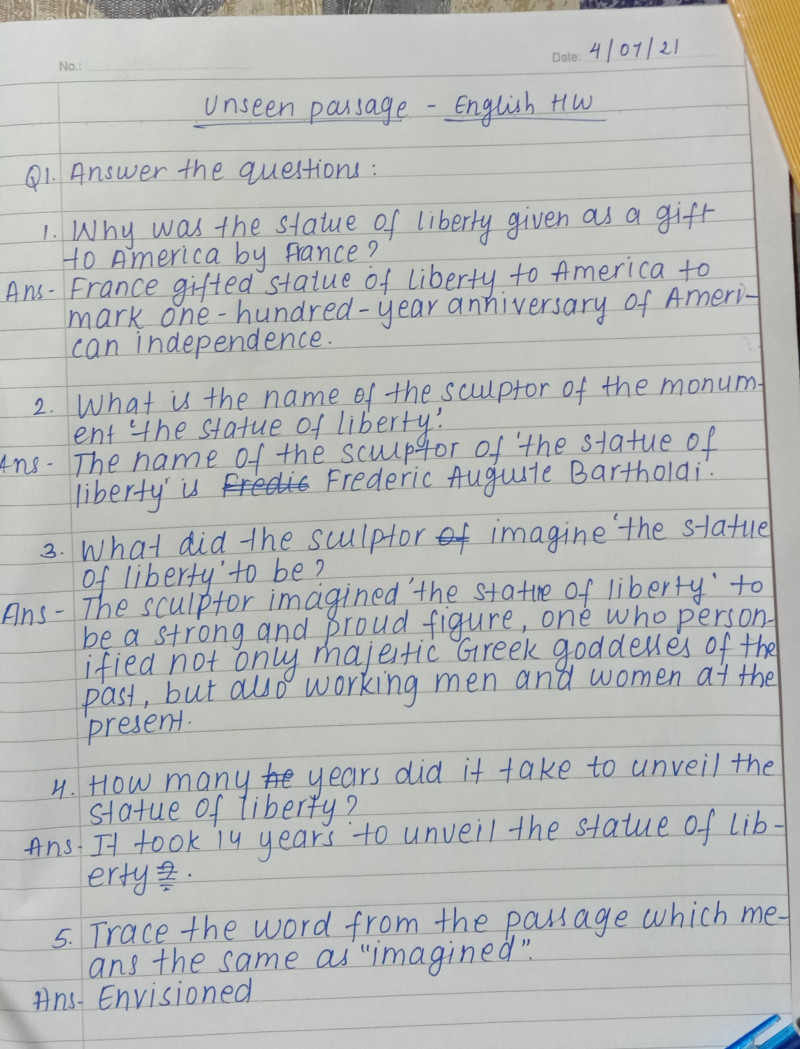 No.:
Date: 4/07/21
Unseen passage - English HW
Q1. Answer the questions :
1. Why was the statue of liberty given as a gift
to America by France?
Ans- France gifted statue of liberty to America to
mark one-hundred-year anniversary of Ameri-
can independence.
2. What is the name of the sculptor of the monum-
ent 'the statue of liberty'.
Ans- The name of the sculptor of 'the statue of
liberty' is Fredic Frederic Auguste Bartholdi.
3. What did the sculptor of imagine 'the statue
of liberty' to be?
Ans- The sculptor imagined 'the statue of liberty' to
be a strong and proud figure, one who person-
ified not only majestic Greek goddesses of the
past, but also working men and women at the
present.
4. How many he years did it take to unveil the
statue of liberty?
Ans- It took 14 years to unveil the statue of lib-
erty ?.
5. Trace the word from the passage which me-
ans the same as "imagined".
Ans- Envisioned